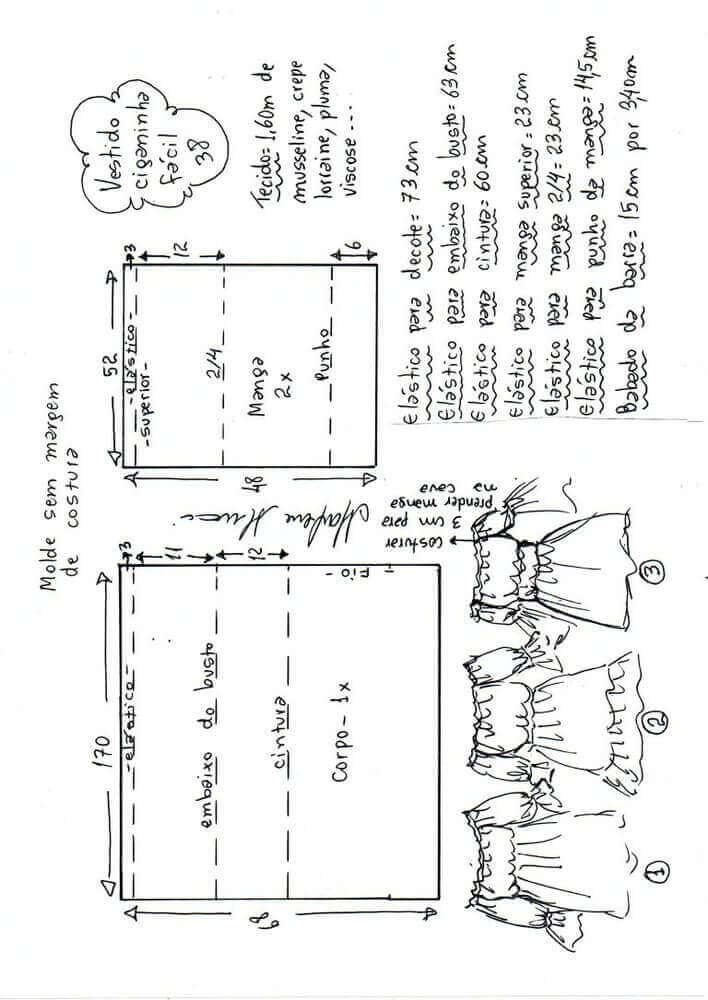 Molde sem margem
de costura
Vestido
ciganinha
fácil
38
Tecido = 1,60m de
musseline, crepe
lorraine, pluma,
viscose...
170
3
-elástico-
11
embaixo do busto
12
cintura
Corpo - 1x
Fio
52
3
-elástico-
-superior-
12
2/4
Manga
2x
Punho
6
48
Marlene Mukai
Elástico para decote = 73 cm
Elástico para embaixo do busto = 63 cm
Elástico para cintura = 60 cm
Elástico para manga superior = 23 cm
Elástico para manga 2/4 = 23 cm
Elástico para punho da manga = 14,5 cm
Babado da barra = 15 cm por 3,40m
costurar
3 cm para
prender manga
na cava
1
2
3